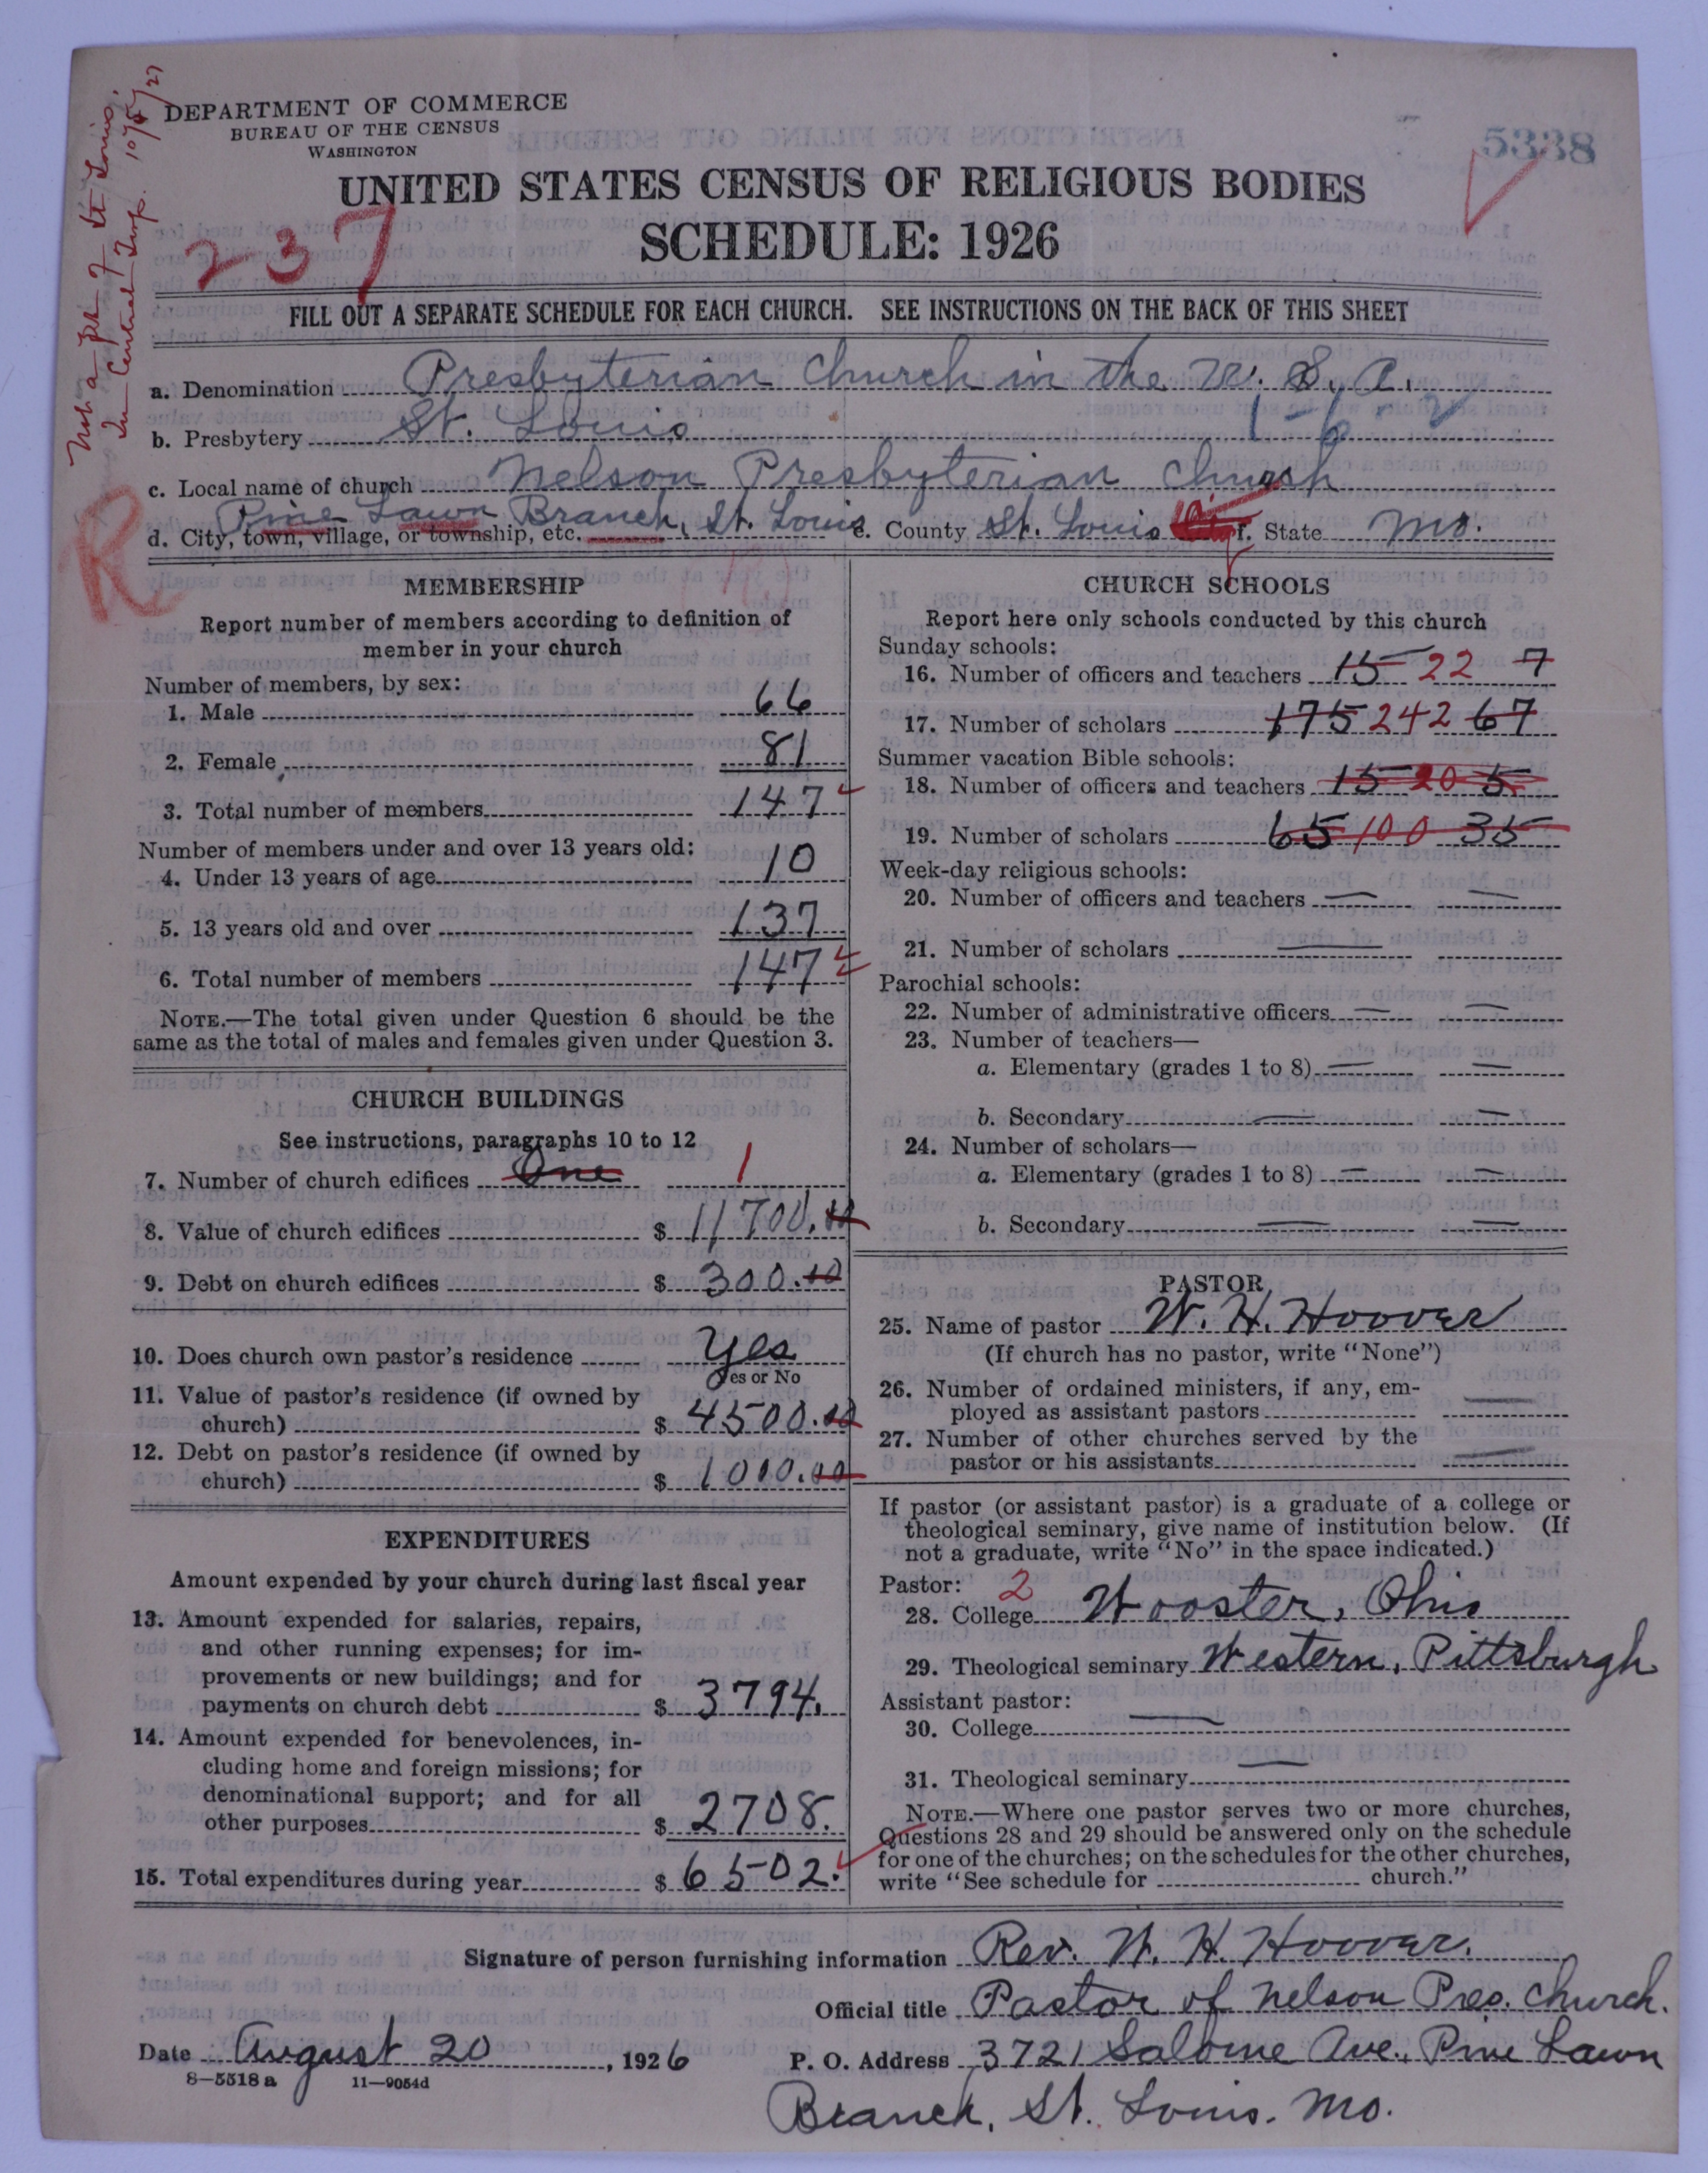 Not a part of St. Louis.
In Central Twp. 10/5/27
DEPARTMENT OF COMMERCE
BUREAU OF THE CENSUS
WASHINGTON
5338
UNITED STATES CENSUS OF RELIGIOUS BODIES
SCHEDULE: 1926
237
FILL OUT A SEPARATE SCHEDULE FOR EACH CHURCH. SEE INSTRUCTIONS ON THE BACK OF THIS SHEET
a. Denomination Presbyterian Church in the U. S. A.
b. Presbytery St. Louis 1-6-2
c. Local name of church Nelson Presbyterian Church
d. City, town, village, or township, etc. Pine Lawn Branch, St. Louis e. County St. Louis City f. State Mo.
R
MEMBERSHIP
Report number of members according to definition of
member in your church
Number of members, by sex:
1. Male 66
2. Female 81
3. Total number of members 147
Number of members under and over 13 years old:
4. Under 13 years of age 10
5. 13 years old and over 137
6. Total number of members 147
NOTE.—The total given under Question 6 should be the
same as the total of males and females given under Question 3.
CHURCH BUILDINGS
See instructions, paragraphs 10 to 12
7. Number of church edifices One 1
8. Value of church edifices $ 11700.00
9. Debt on church edifices $ 300.00
10. Does church own pastor's residence Yes
Yes or No
11. Value of pastor's residence (if owned by
church) $ 4500.00
12. Debt on pastor's residence (if owned by
church) $ 1000.00
EXPENDITURES
Amount expended by your church during last fiscal year
13. Amount expended for salaries, repairs,
and other running expenses; for im-
provements or new buildings; and for
payments on church debt $ 3794.
14. Amount expended for benevolences, in-
cluding home and foreign missions; for
denominational support; and for all
other purposes $ 2708.
15. Total expenditures during year $ 6502.
CHURCH SCHOOLS
Report here only schools conducted by this church
Sunday schools:
16. Number of officers and teachers 15 22 7
17. Number of scholars 175 242 67
Summer vacation Bible schools:
18. Number of officers and teachers 15 20 5
19. Number of scholars 65 100 35
Week-day religious schools:
20. Number of officers and teachers — —
21. Number of scholars —
Parochial schools:
22. Number of administrative officers — —
23. Number of teachers—
a. Elementary (grades 1 to 8) — —
b. Secondary — —
24. Number of scholars—
a. Elementary (grades 1 to 8) — —
b. Secondary — —
PASTOR
25. Name of pastor W. H. Hoover
(If church has no pastor, write "None")
26. Number of ordained ministers, if any, em-
ployed as assistant pastors —
27. Number of other churches served by the
pastor or his assistants —
If pastor (or assistant pastor) is a graduate of a college or
theological seminary, give name of institution below. (If
not a graduate, write "No" in the space indicated.)
Pastor: 2
28. College Wooster, Ohio
29. Theological seminary Western, Pittsburgh
Assistant pastor:
30. College —
31. Theological seminary —
NOTE.—Where one pastor serves two or more churches,
Questions 28 and 29 should be answered only on the schedule
for one of the churches; on the schedules for the other churches,
write "See schedule for church."
Signature of person furnishing information Rev. W. H. Hoover.
Official title Pastor of Nelson Pres. Church.
Date August 20, 1926 P. O. Address 3721 Salome Ave., Pine Lawn
8—5518 a 11—9054d
Branch, St. Louis. Mo.